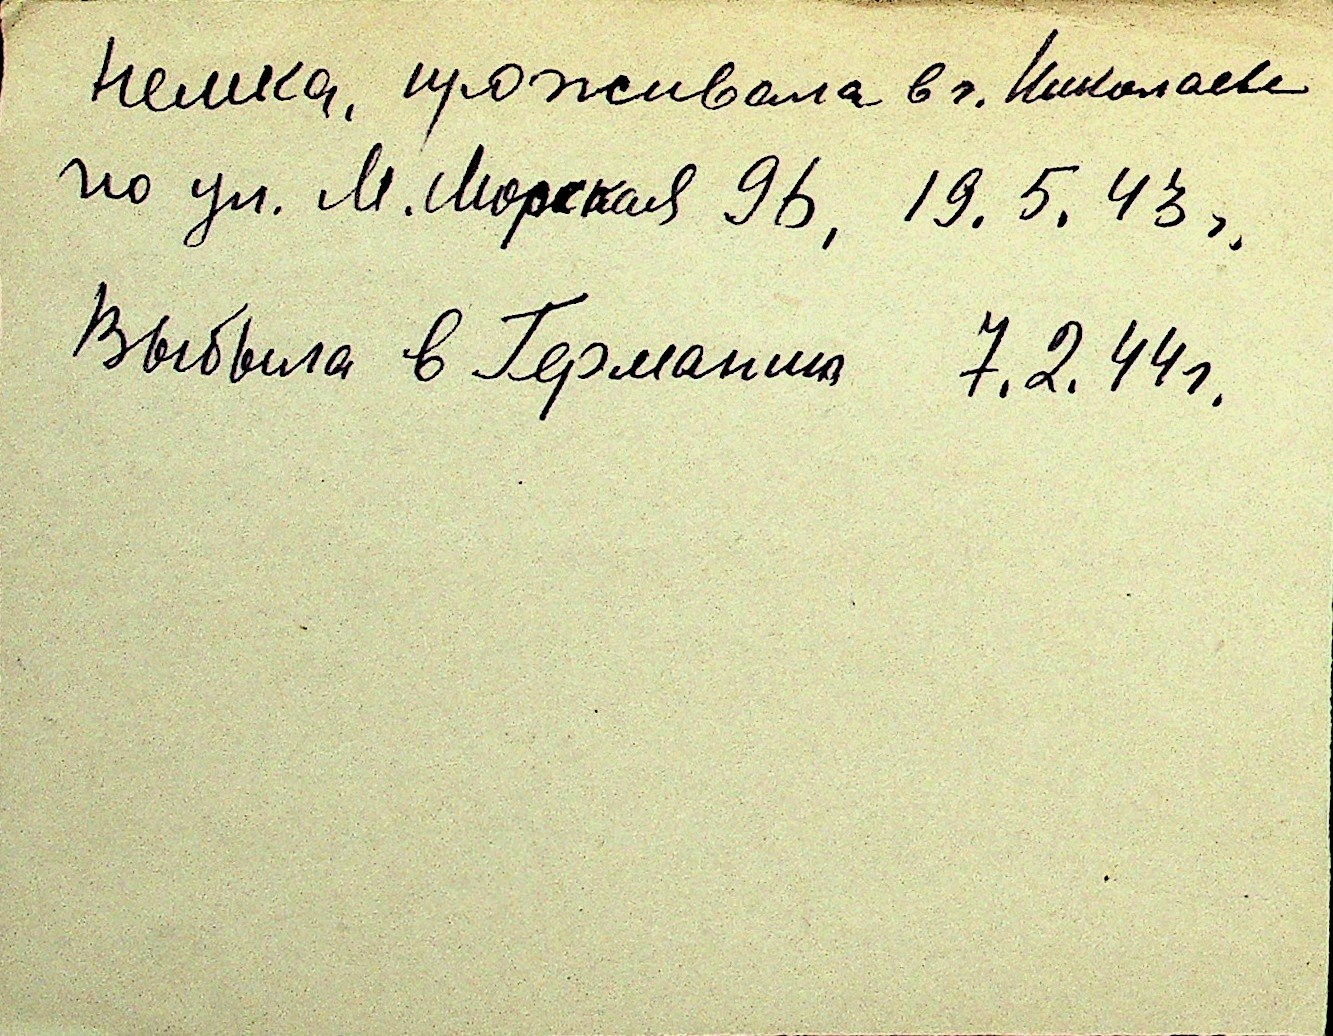 Немка, проживала в г. Николаеве
по ул. М. Морская 96, 19.5.43 г.
Выбыла в Германии 7.2.44 г.